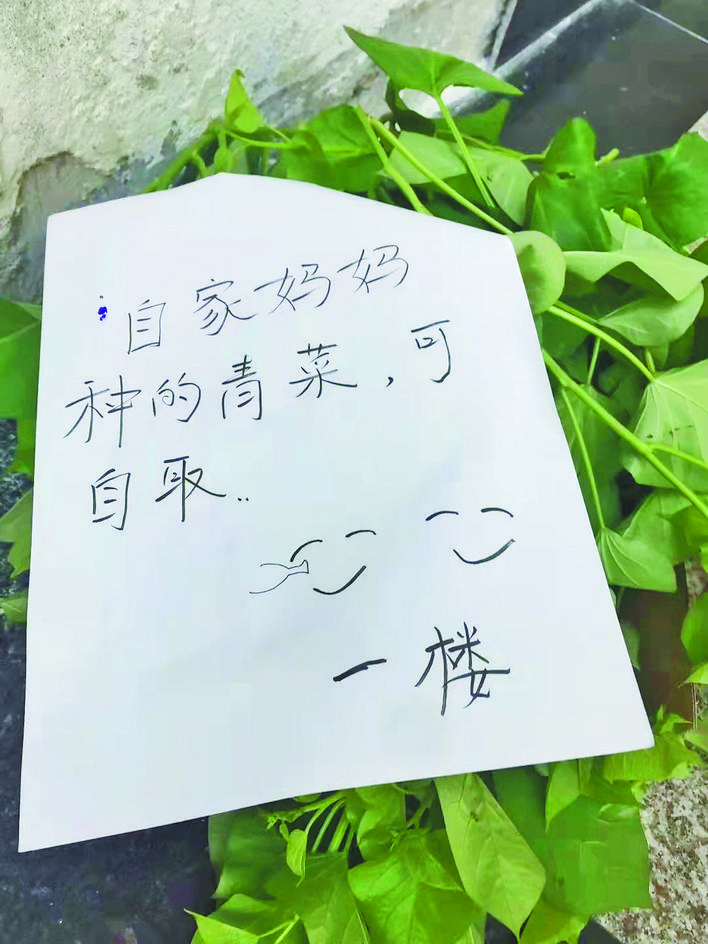 自家妈妈
种的青菜,可
自取..
一楼